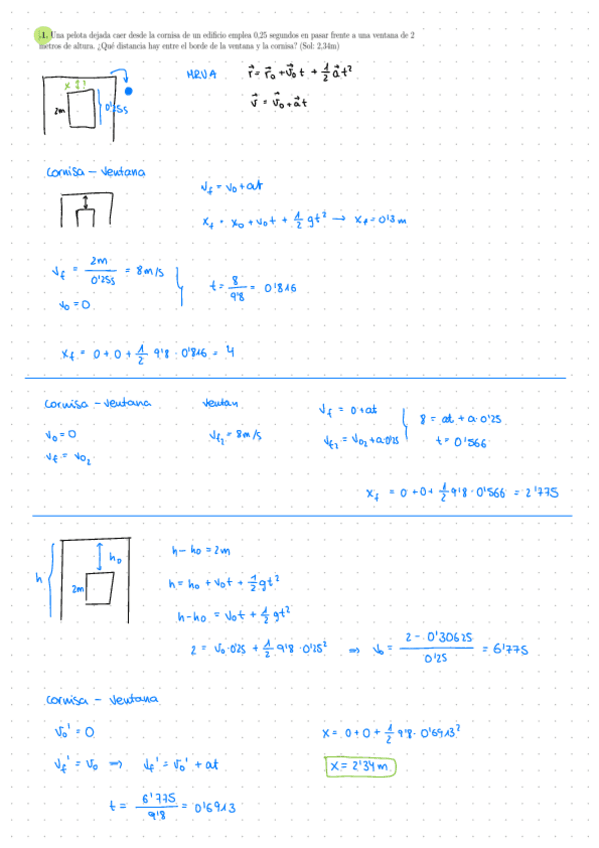 1. Una pelota dejada caer desde la cornisa de un edificio emplea 0,25 segundos en pasar frente a una ventana de 2
metros de altura. ¿Qué distancia hay entre el borde de la ventana y la cornisa? (Sol: 2,34m)
MRVA r⃗ = r⃗₀ + v⃗₀t + 1/2 a⃗t²
v⃗ = v⃗₀ + a⃗t
x
2m
0'25s
Cornisa - Ventana
v_f = v₀ + at
x_f = x₀ + v₀t + 1/2 gt² → x_f = 0'3 m
v_f = 2m / 0'25s = 8m/s
v₀ = 0
t = 8 / 9'8 = 0'816
x_f = 0 + 0 + 1/2 9'8 · 0'816 = 4
Cornisa - Ventana
v₀ = 0
v_f = v₀₂
Ventan
v_f₂ = 8m/s
v_f = 0 + at
v_f₂ = v₀₂ + a·0'25
8 = at + a·0'25
t = 0'566
x_f = 0 + 0 + 1/2 9'8 · 0'566 = 2'775
h
h₀
2m
h - h₀ = 2m
h = h₀ + v₀t + 1/2 gt²
h - h₀ = v₀t + 1/2 gt²
2 = v₀·0'25 + 1/2 9'8 · 0'25² ⇒ v₀ = (2 - 0'30625) / 0'25 = 6'775
Cornisa - Ventana
v₀' = 0
v_f' = v₀ ⇒ v_f' = v₀' + at
t = 6'775 / 9'8 = 0'6913
x = 0 + 0 + 1/2 9'8 · 0'6913²
x = 2'34 m